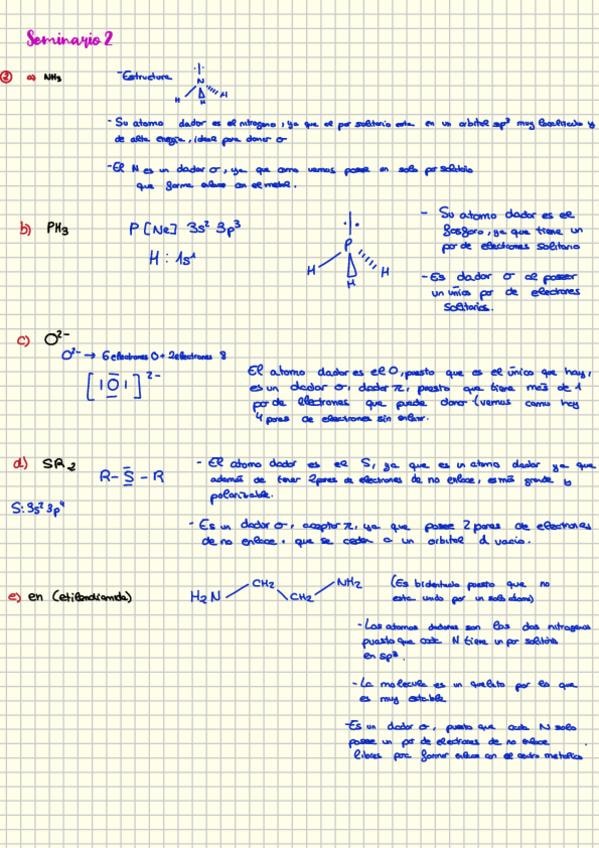 Seminario 2
② a) NH₃ - Estructura N H H H
- Su atomo dador es el nitrogeno, ya que el par solitario esta en un orbital sp³ muy localizado y
de alta energia, ideal para donar σ
- El N es un dador σ, ya que como vemos posee un solo par solitario
que forme enlace con el metal.
b) PH₃ P [Ne] 3s² 3p³
H : 1s¹
P H H H
- Su atomo dador es el
fosforo, ya que tiene un
par de electrones solitario
- Es dador σ al poseer
un unico par de electrones
solitarios.
c) O²⁻
O²⁻ → 6 electrones O + 2 electrones 8
[ |O| ]²⁻
El atomo dador es el O, puesto que es el único que hay,
es un dador σ, dador π, puesto que tiene más de 1
par de electrones que puede donar (vemos como hay
4 pares de electrones sin enlazar.
d) SR₂ R-S-R
S: 3s² 3p⁴
- El atomo dador es el S, ya que es un atomo dador ya que
además de tener 2 pares de electrones de no enlace, es más grande y
polarizable.
- Es un dador σ, aceptor π, ya que posee 2 pares de electrones
de no enlace, que se ceden a un orbital d vacio.
e) en (etilendiamida) H₂N CH₂ CH₂ NH₂
(Es bidentado puesto que no
esta unido por un solo atomo)
- Los atomos dadores son los dos nitrogenos
puesto que cada N tiene un par solitario
en sp³.
- La molecula es un quelato por lo que
es muy estable
- Es un dador σ, puesto que cada N solo
posee un par de electrones de no enlace
libres para formar enlace con el centro metalico